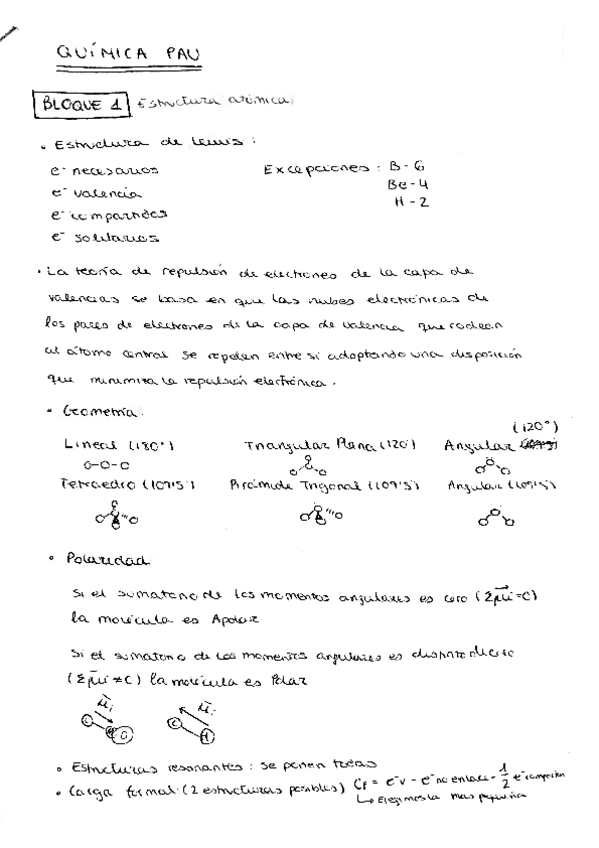 QUÍMICA PAU
BLOQUE 1 Estructura atómica
• Estructura de Lewis :
e⁻ necesarios Excepciones : B - 6
e⁻ valencia Be - 4
e⁻ compartidos H - 2
e⁻ solitarios
• La teoría de repulsión de electrones de la capa de
valencias se basa en que las nubes electrónicas de
los pares de electrones de la capa de valencia que rodean
al átomo central se repelen entre si adoptando una disposición
que minimiza la repulsión electrónica.
• Geometría:
(120°)
Lineal (180°) Triangular Plana (120°) Angular
Tetraedro (109'5) Pirámide Trigonal (109'5) Angular (109'5)
• Polaridad
Si el sumatorio de los momentos angulares es cero (Σμi = 0)
la molécula es Apolar
Si el sumatorio de los momentos angulares es de
(Σμi ≠ 0) la molécula es Polar
μi μi
C O C H
• Estructuras resonantes : se ponen todas
• Carga formal: (2 estructuras posibles) Cf = e⁻v - e⁻ no enlace - 1/2 e⁻ compartidos
↳ Elegimos la mas pequeña